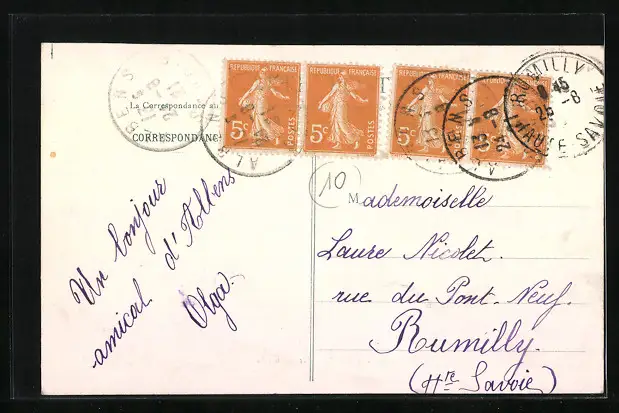 REPUBLIQUE FRANÇAISE
REPUBLIQUE FRANÇAISE
REPUBLIQUE FRANÇAISE
REPUBLIQUE FRANÇAISE
5c POSTES
5c POSTES
5c POSTES
POSTES
RUMILLY
HAUTE SAVOIE
ALBENS
La Correspondance au
CORRESPONDANC
10
Mademoiselle
Laure Nicolet.
rue du Pont-Neuf.
Rumilly.
(Hte Savoie)
Un bonjour
amical d'Albens
Olga.